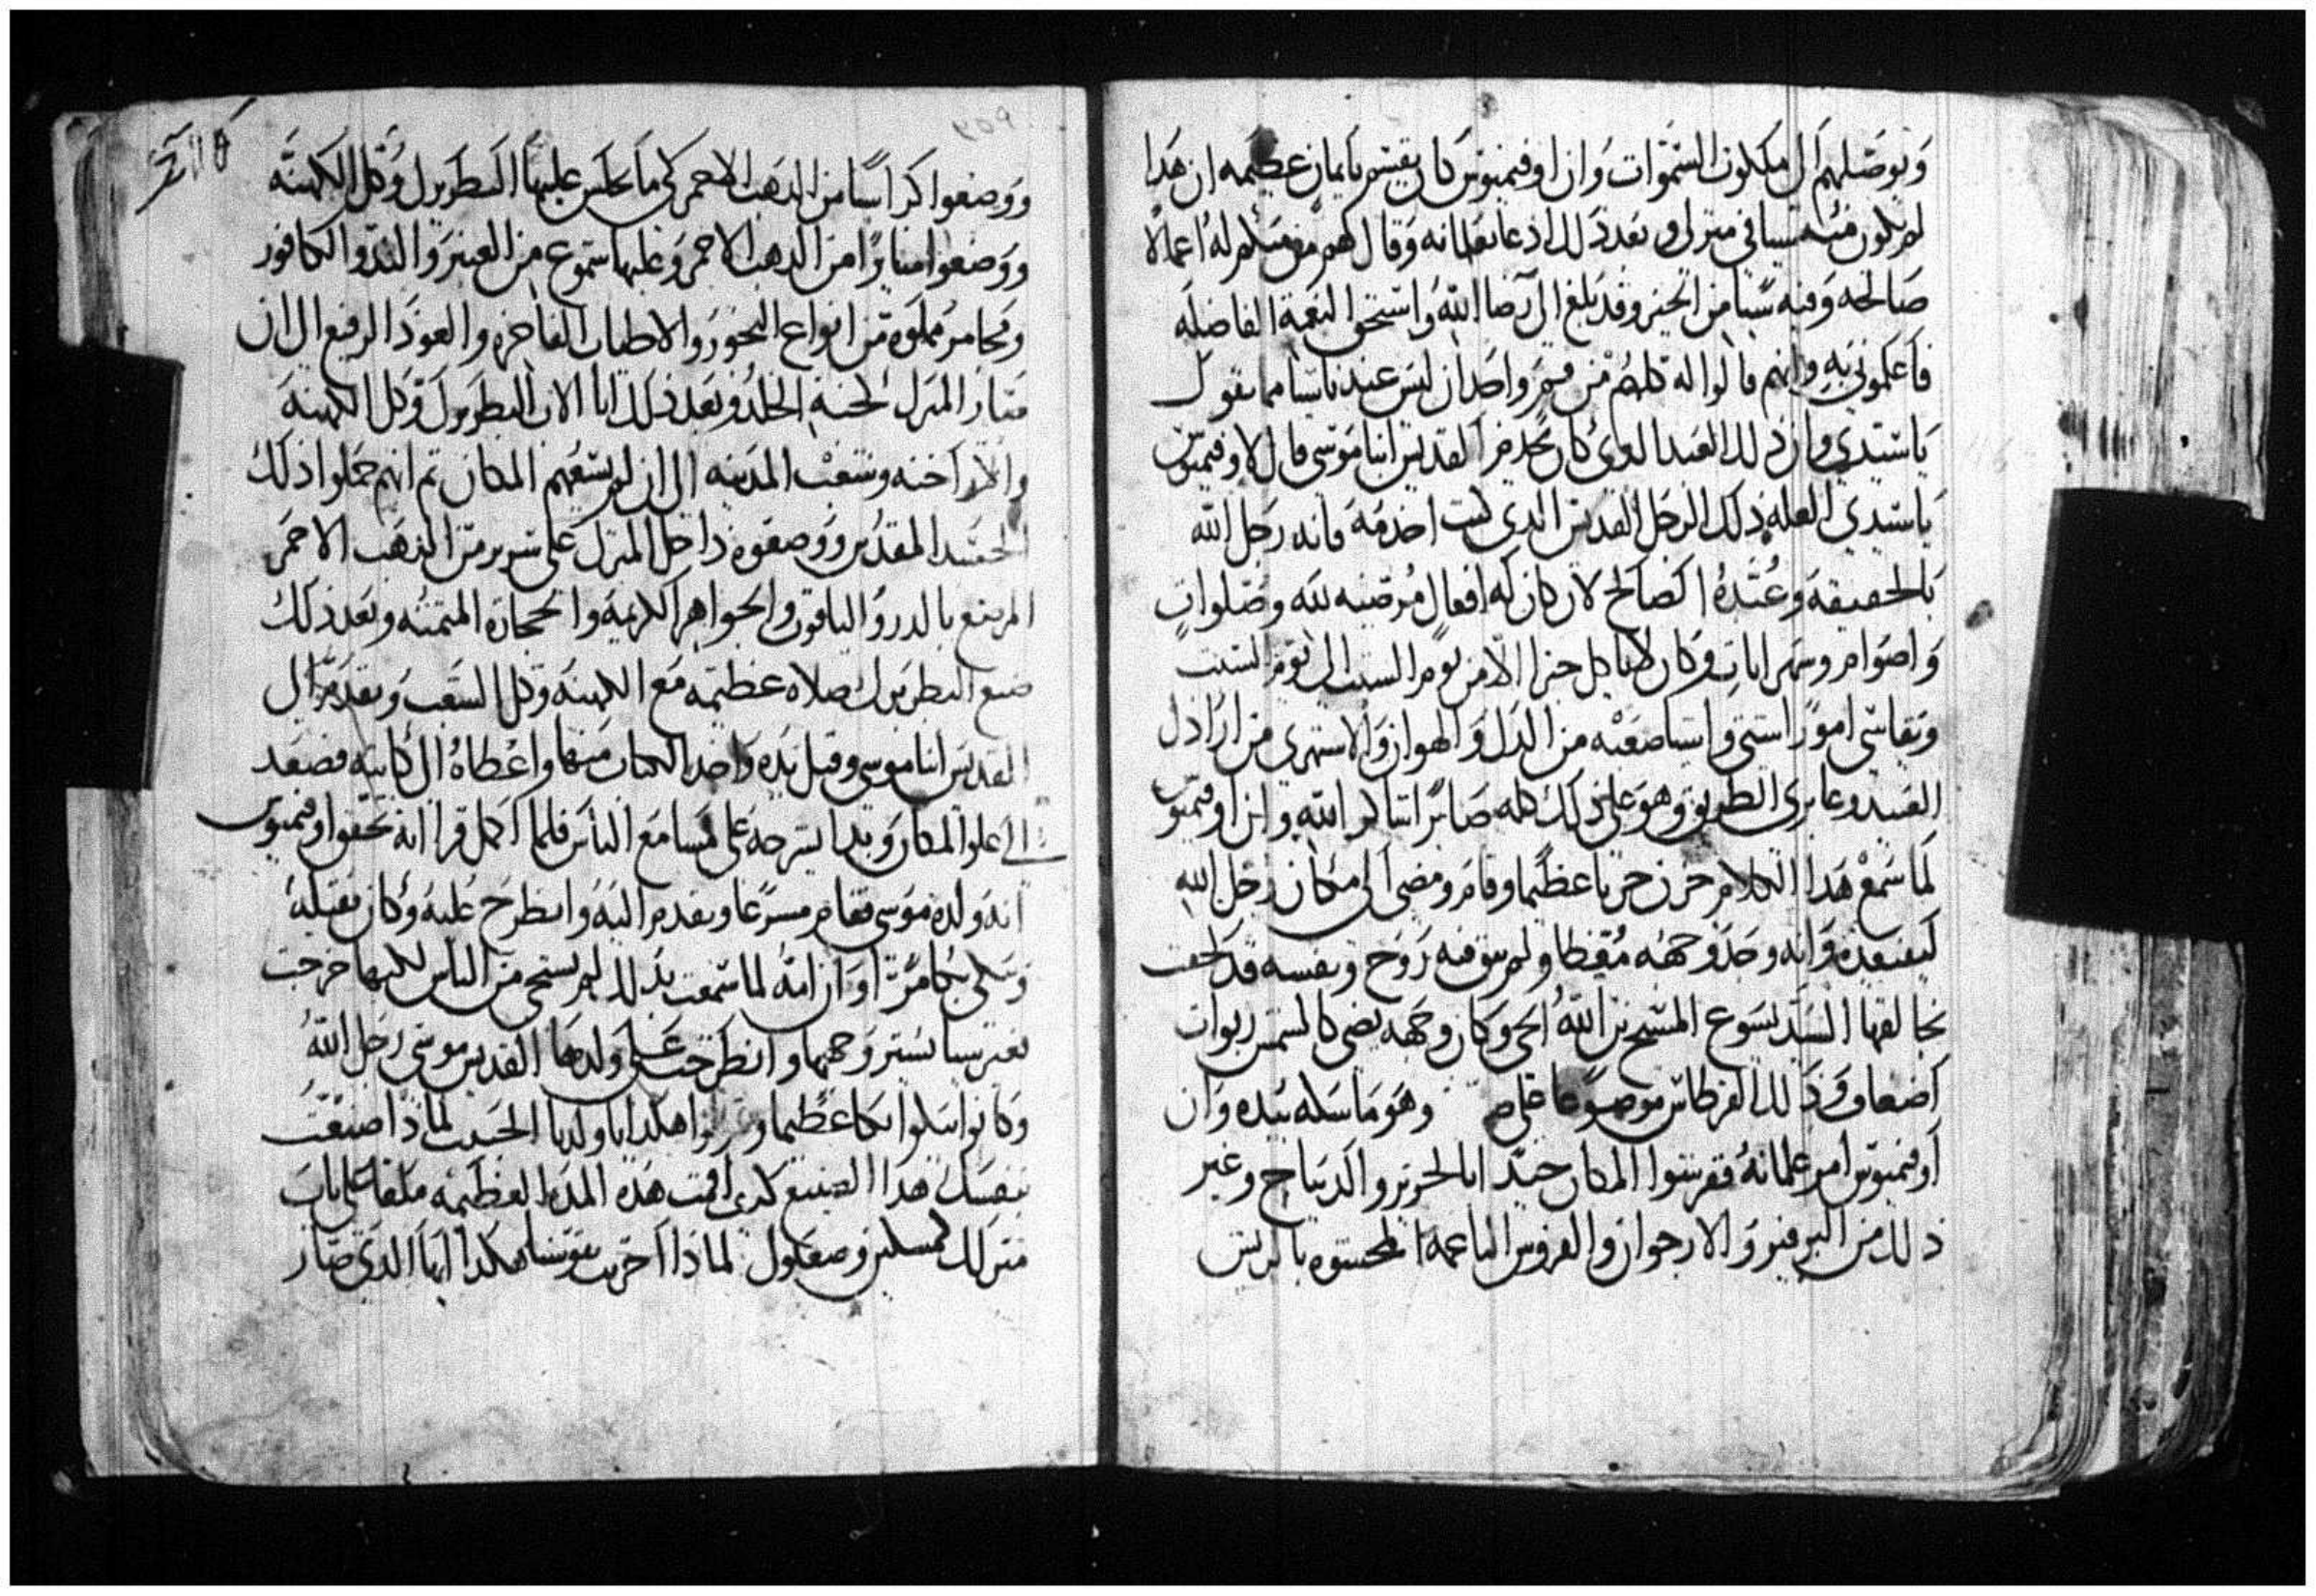 ويوصلهم الى ملكوت السموات وان اوفيميوس كان يقسم بايمان عظيمه ان هدا
لم يكون منه شيا في منزلي وبعد دلك ادعا بغلمانه وقال لهم من منكم له اعمالا
صالحه وفيه شيا من الخير وقد بلغ الى رضا الله واستحق النعمة الفاضله
فاعلموني به وانهم قالوا له كلهم من فم واحد ان ليس عندنا شيا مما تقول
يا سيدي وان دلك العبد الدي كان يخدم القديس انبا موسى قال لاوفيميوس
يا سيدي لعله ذلك الرجل القديس الدي كنت اخدمه فانه رجل الله
بالحقيقة وعنده اكصالح لان كان له افعال مرضيه لله وصلوات
واصوام وسهر ايات وكان لا ياكل خبزا الا من يوم السبت الى يوم السبت
ويقاسي امورا شتى واشيا صعبه من الدل والهوان والاستهزى من ارادل
العبيد وعابري الطريق وهو على ذلك كله صابرا شاكر الله وان اوفيميوس
لما سمع هدا الكلام حزن حزنا عظيما وقام ومضى الى مكان رجل الله
ليفتقده وانه وجد وجهه مغطا ولم يبق فيه روح ونفسه قد لحقت
بخالقها السيد يسوع المسيح بن الله الحي وكان وجهه يضي كالشمس ربوات
اضعاف وذلك القرطاس موضوعا على وهو ماسكه بيده وان
اوفيميوس امر غلمانه ففرشوا المكان جيدا بالحرير والديباج وغير
ذلك من البرفير والارجوان والفروش الناعمه المحشوه بالريش
١١٥ اخر
٢٥٩
ووضعوا كراسيا من الدهب الاحمر لكي ما يجلس عليها البطريرك وكل الكهنه
ووضعوا منابرا من الدهب الاحمر وعليها شموع من العنبر والند والكافور
ومجامر مملوة من انواع البخور والاطياب الفاخره والعود الرفيع الى ان
صار المنزل كجنة الخلد وبعد ذلك اتا الاب البطريرك وكل الكهنه
والاراخنه وشعب المدينه الى ان لم يسعهم المكان تم انهم حملوا ذلك
الجسد المقدس ووضعوه داخل المنزل على سرير من الذهب الاحمر
المرصع بالدر والياقوت والجواهر الكريمة والحجاره المتمنه وبعد ذلك
صنع البطريرك صلاه عظيمه مع الكهنه وكل الشعب وتقدم الى
القديس انبا موسى وقبل يده واخد الكتاب منها واعطاه الى كاتبه فصعد
الى علو المكان وبدا يشرحه على مسامع الناس فلما اكمل قراانه تحقق اوفيميوس
انه ولده موسى فقام مسرعا وتقدم اليه وانطرح عليه وكان يقبله
ويبكي بكا مرا وان امه لما سمعت بدلك لم يستحي من الناس لكنها خرجت
بغير شيا يستر وجهها وانطرحت على ولدها القديس موسى رجل الله
وكانوا يبكوا بكا عظيما هكدا يا ولدنا الحبيب لماذا صنعت
بنفسك هدا الصنيع لدى اقمت هده المده العظيمه ملقا على باب
منزلك كمسكين وصعلوك لماذا احزنت نفوسنا هكدا ايها الدي صار